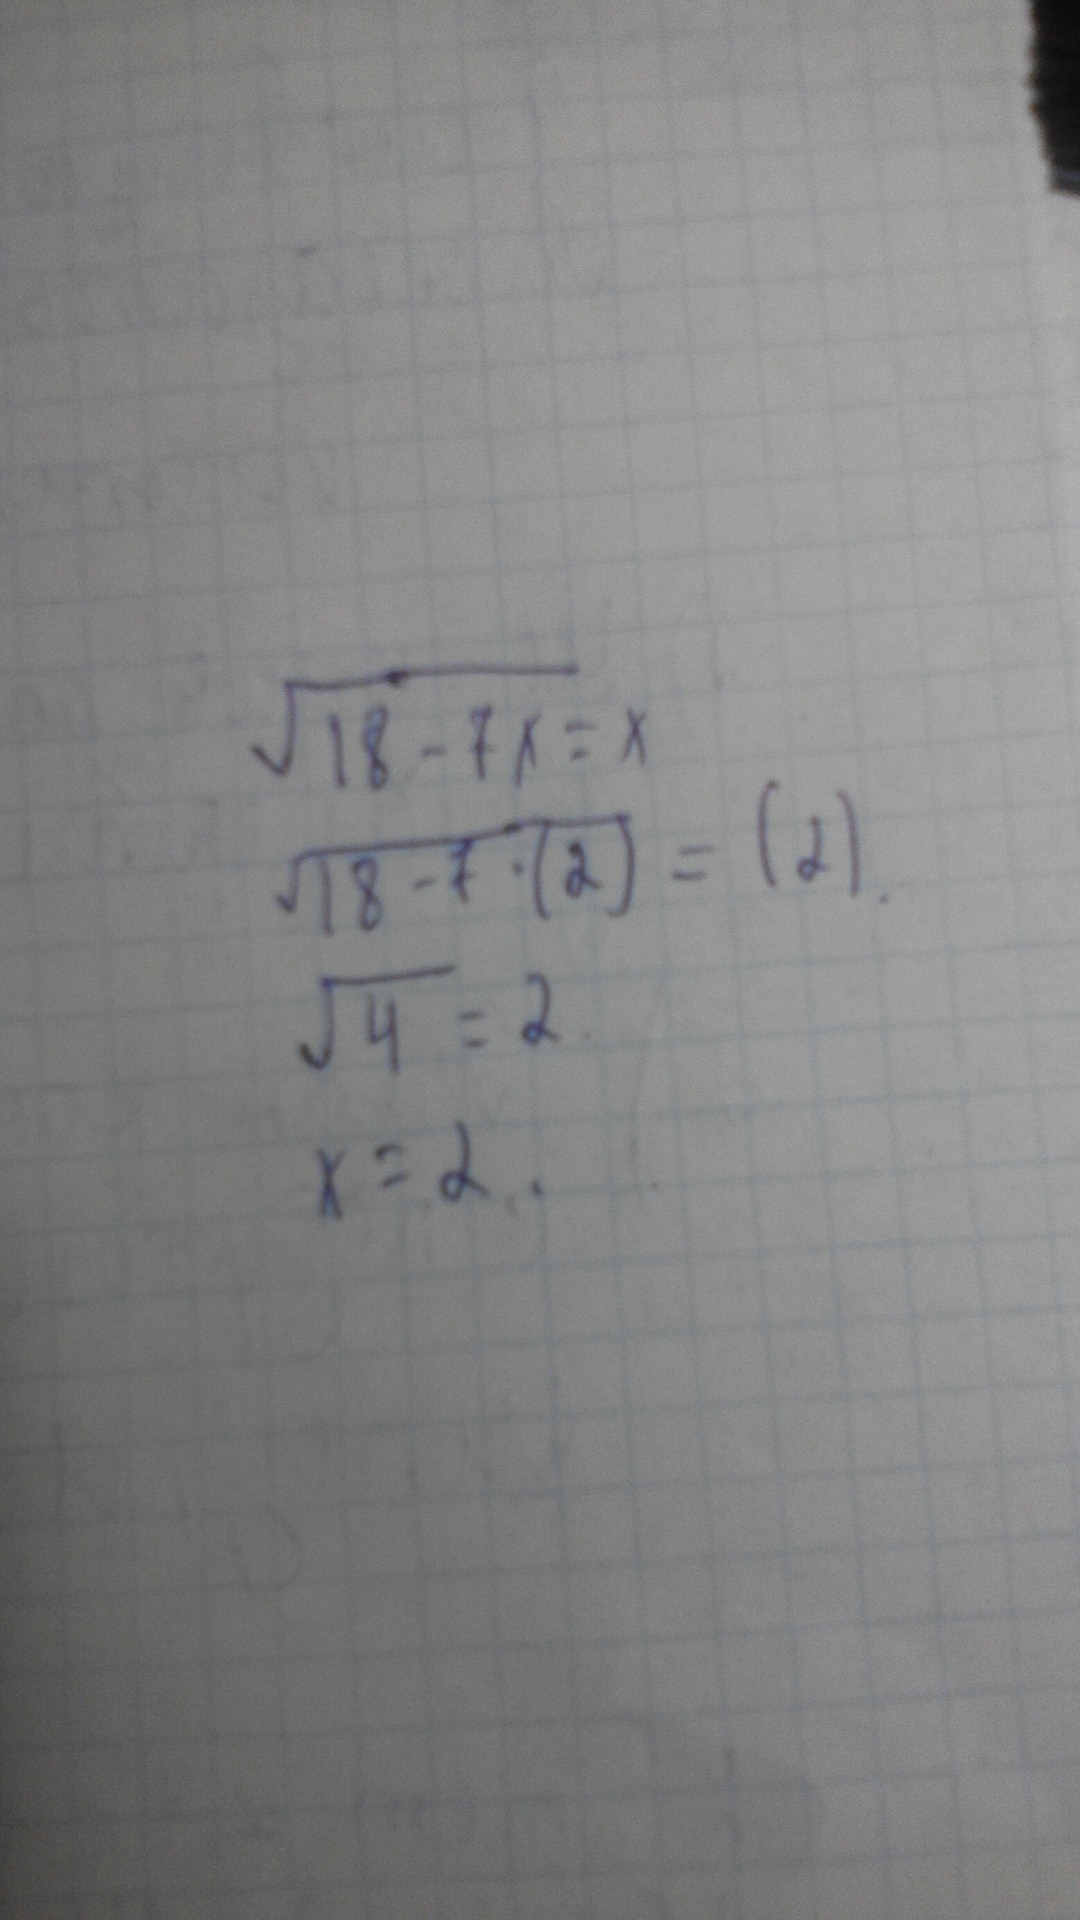 √18-7x=x
√18-7·(2) = (2).
√4 = 2.
x=2.